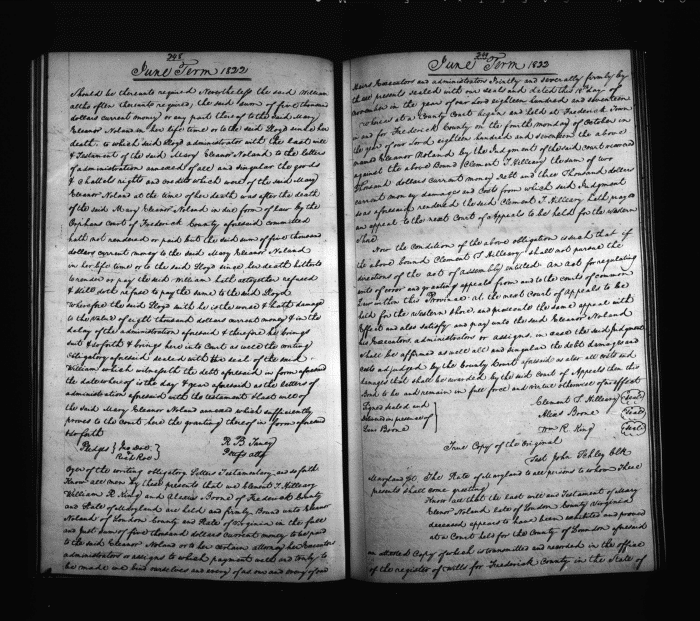 248
June Term 1822
Should be thereunto required Nevertheless the said William
altho often thereto required, the said sum of five thousand
dollars current money or any part thereof to the said Mary
Eleanor Noland in her life time or to the said Lloyd since her
death, to which said Lloyd administrator with the last will
& Testament of the said Mary Eleanor Noland to the letters
of administration annexed of all and singular the goods
& Chattels rights and credits which were of the said Mary
Eleanor Noland at the time of her death was after the death
of the said Mary Eleanor Noland in due form of law by the
Orphans Court of Frederick County aforesaid committed
hath not rendered or paid but the said sum of five thousand
dollars current money to the said Mary Eleanor Noland
in her life time or to the said Lloyd since her death hitherto
to render or pay the said William hath altogether refused
& still doth refuse to pay the same to the said Lloyd
Wherefore the said Lloyd saith he is the worse & hath damage
to the value of eight thousand dollars current money & in the
delay of the administration aforesaid & therefore he brings
suit & so forth & brings here into Court as well the writing
Obligatory aforesaid sealed with the seal of the said
William which witnesseth the debt aforesaid in form aforesaid
the date whereof is the day & year aforesaid as the letters of
administration aforesaid with the testament & last will of
the said Mary Eleanor Noland annexed which sufficiently
proves to the Court here the granting thereof in form aforesaid
& so forth
Pledges } Jno Doe &
Richd Roe }
R. B. Taney
Plffs atty
Oyer of the writing obligatory Letters Testamentary and so forth
Know all men by these presents that we Clement T Hilleary
William R King and Alexius Boone of Frederick County
and State of Maryland are held and firmly Bound unto Eleanor
Noland of Loudon County and State of Virginia in the full
and just sum of five thousand dollars current money to be paid
to the said Eleanor Noland or to her certain attorney her Executors
administrators or assigns to which payment well and truly to
be made we bind ourselves and every of us our and every of our
249
June Term 1822
Heirs Executors and administrators Jointly and severally firmly by
these presents sealed with our seals and dated this day of
November in the year of our Lord eighteen hundred and seventeen
Whereas at a County Court began and held at Frederick Town
in and for Frederick County on the fourth monday of October in
the year of our Lord eighteen hundred and seventeen the above
named Eleanor Noland by the Judgment of the said Court recovered
against the above Bound Clement T. Hilleary the sum of two
thousand dollars current money Debt and three Thousand dollars
current money damages and Costs from which said Judgment
so as aforesaid rendered the said Clement T Hilleary hath prayed
an appeal to the next Court of Appeals to be held for the western
Shore
Now the Condition of the above obligation is such that if
the above bound Clement T Hilleary shall not pursue the
directions of the act of assembly entitled An act for regulating
writs of error and granting appeals from and to the courts of common
Law within this Province at the next Court of Appeals to be
held for the western shore and prosecute the same appeal with
Effect and also satisfy and pay unto the said Eleanor Noland
his Executors administrators or assigns in case the said Judgment
shall be affirmed as well all and singular the debt damages and
costs adjudged by the County Court aforesaid as also all costs and
damages that shall be awarded by the said Court of Appeals then this
Bond to be and remain in full force and virtue otherwise of no effect
Clement T. Hilleary (Seal)
Signed sealed and
Alexs Boone (Seal)
delivered in presence of
Wm R. King (Seal)
Boone
True Copy of the Original
Test John Schley Clk
Maryland Sc. The State of Maryland to all persons to whom These
presents shall come greeting
Know all that the last will and Testament of Mary
Elenor Noland late of Loudon County Virginia
deceased appears to have been exhibited and proved
at a Court held for the County of Loudon aforesaid
an attested Copy of which is transmitted and recorded in the office
of the register of wills for Frederick County in the State of